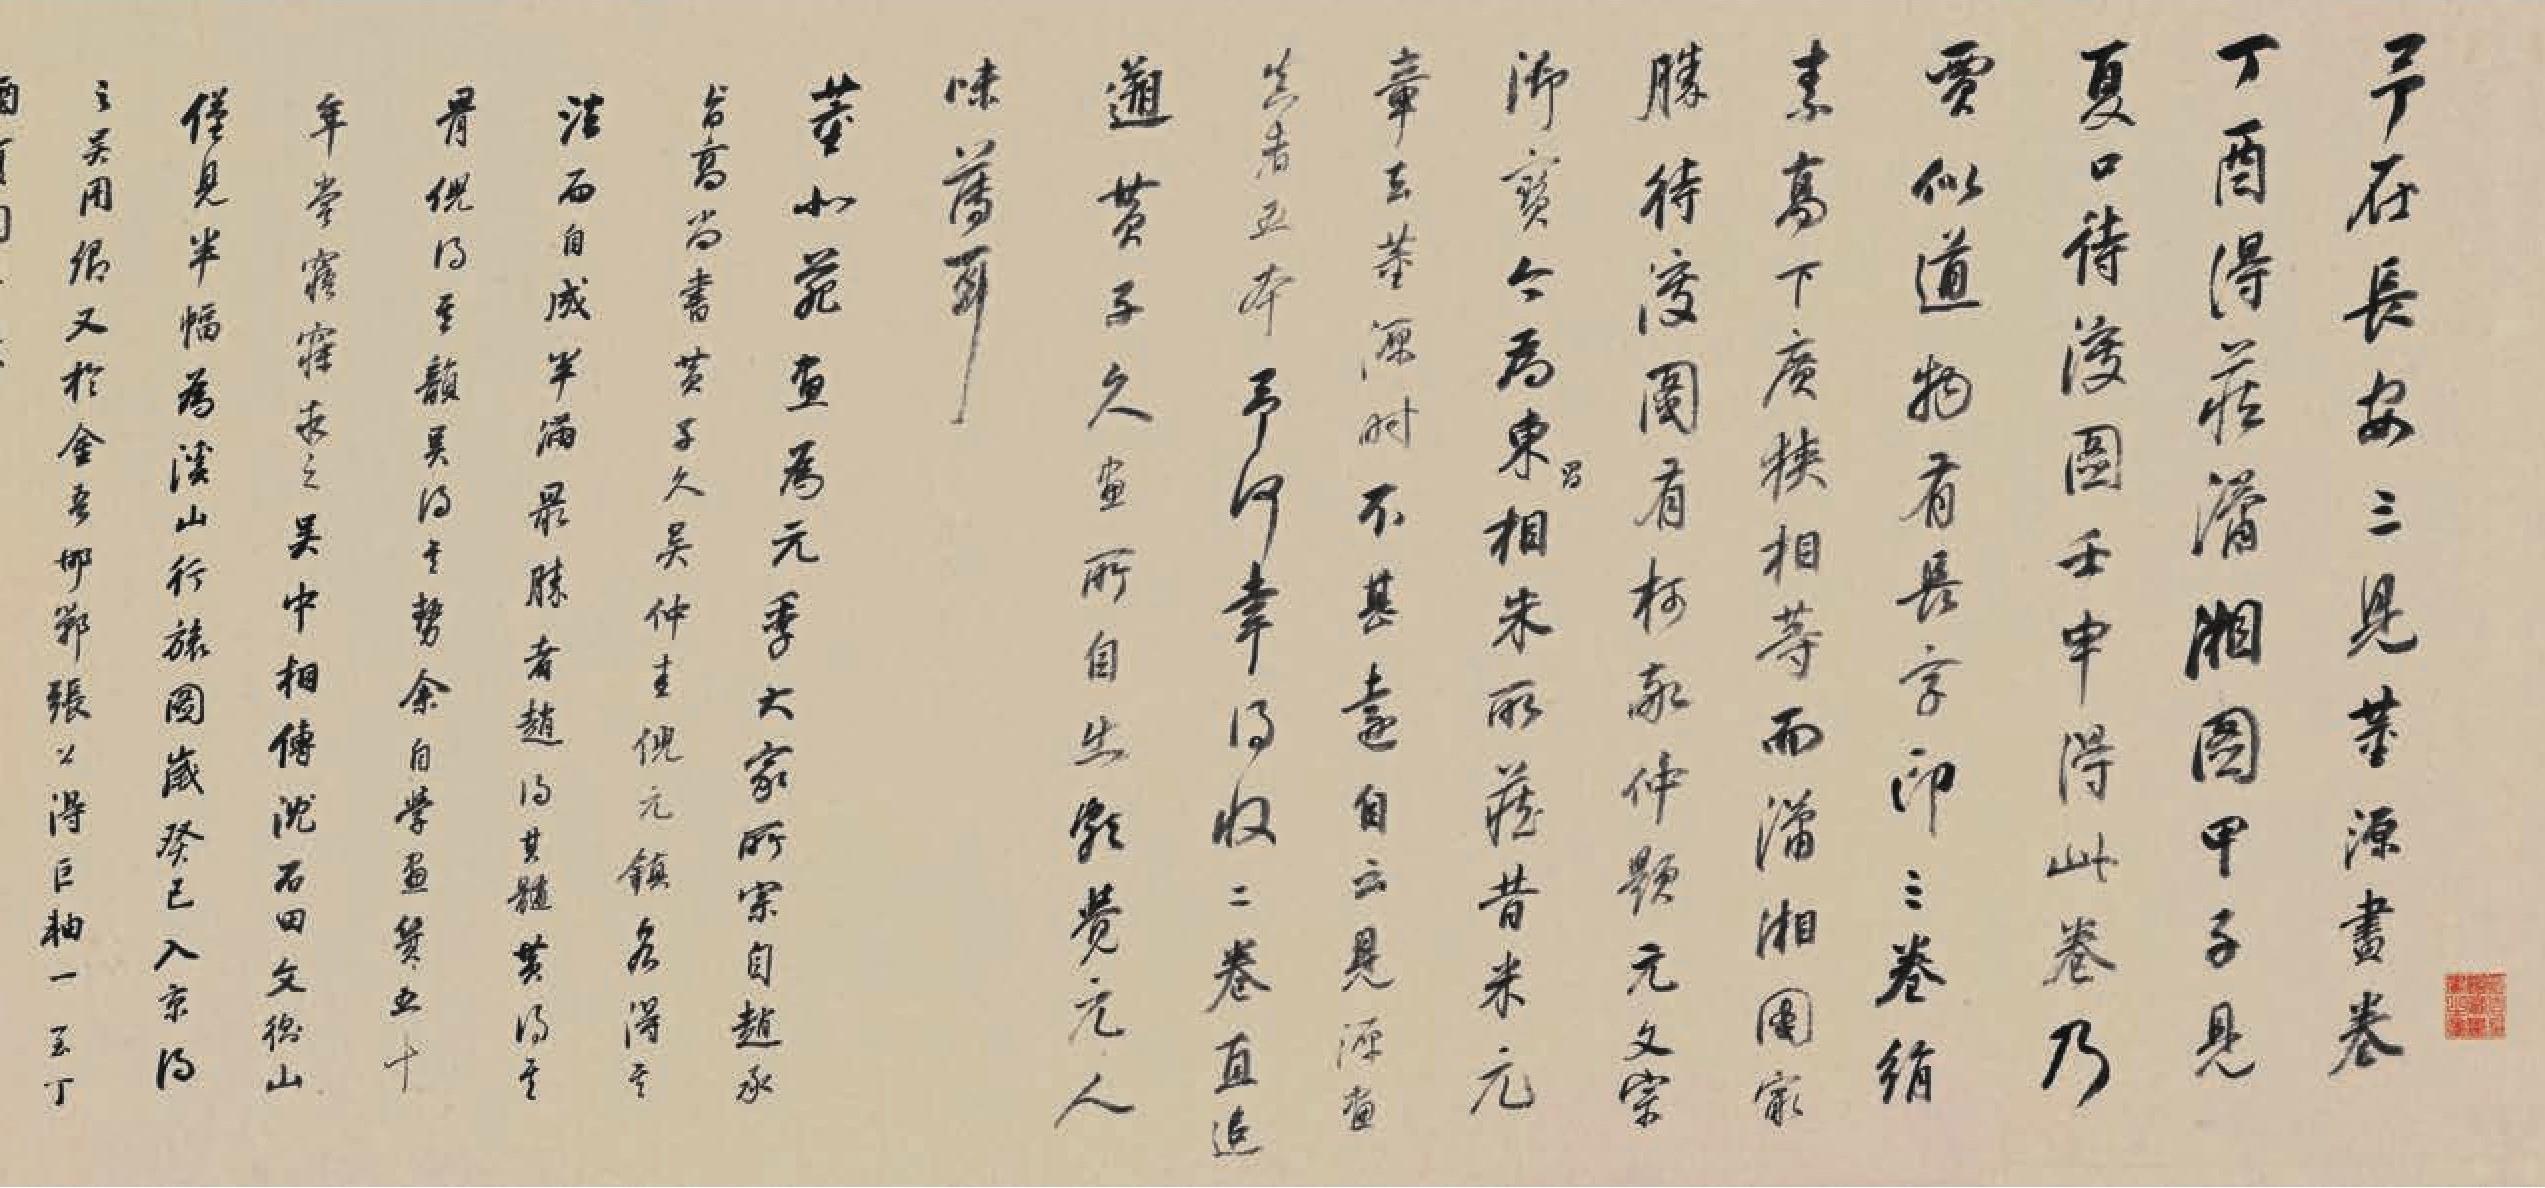 予在長安三見董源畫卷
丁酉得藏瀟湘圖甲子見
夏口待渡圖壬申得此卷乃
賈似道物有長字印三卷絹
素高下廣狹相等而瀟湘圖最
勝待渡圖有柯敬仲題元文宗
御寶今為東相朱所藏昔米元
留
章去董源時不甚遠自云見源畫
真者五本予何幸得收二卷直追
遡黃子久畫所自出頗覺元人
味薄耳
董北苑畫為元季大家所宗自趙承
旨高尚書黃子久吳仲圭倪元鎮各得其
法而自成半滿最勝者趙得其髓黃得其
骨倪得其韻吳得其勢余自學畫幾五十
年嘗寤寐求之吳中相傳沈石田文衡山
僅見半幅為溪山行旅圖歲癸巳入京得
之吳用卿又於金吾鄭張公得巨軸一至丁
酉夏同